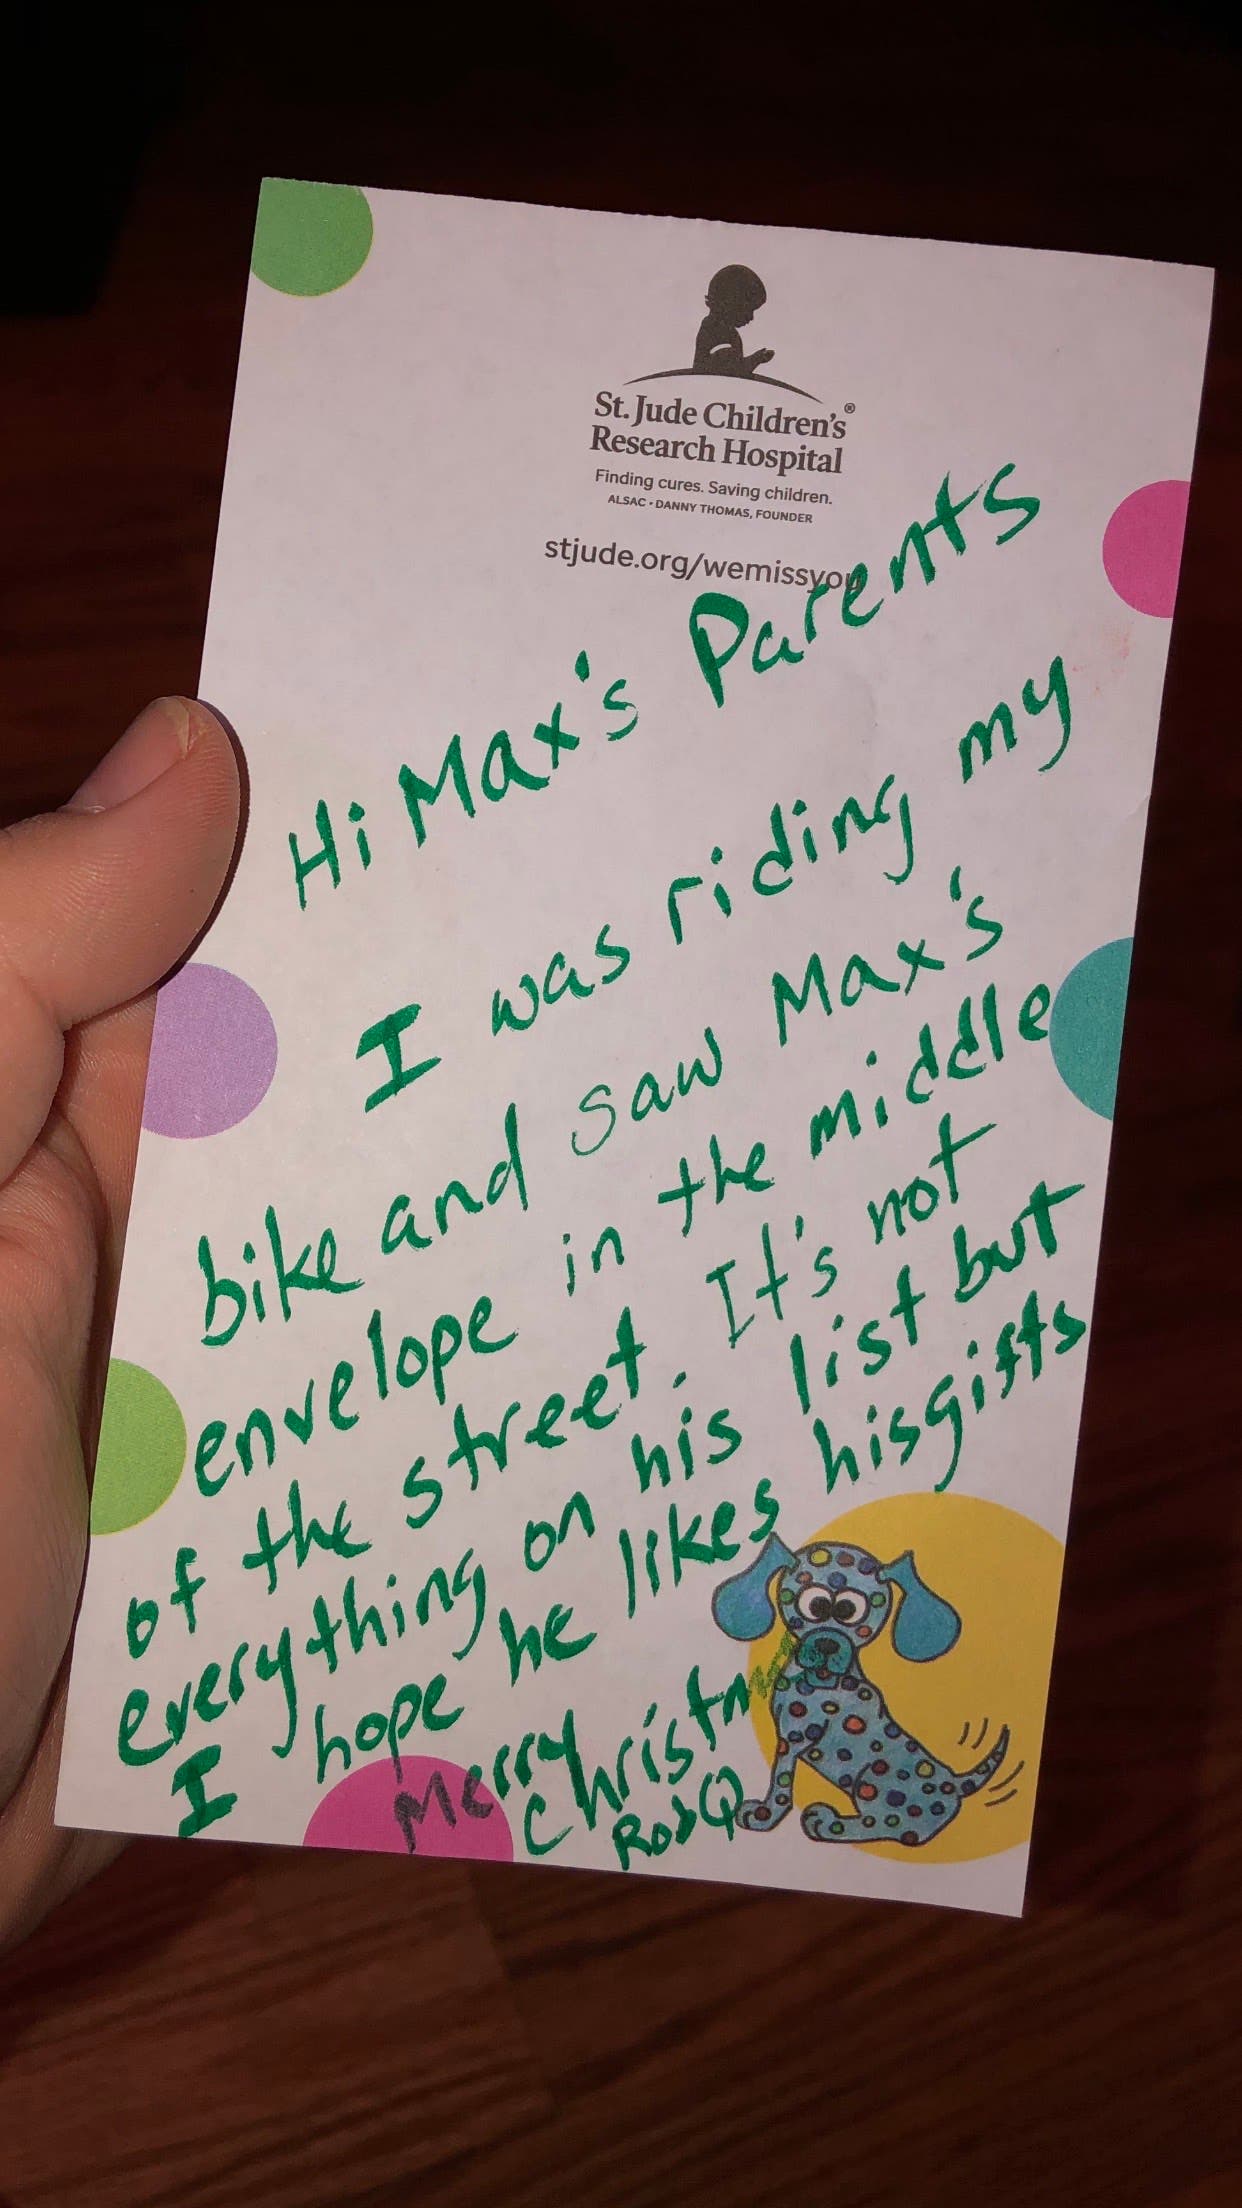 St. Jude Children's®
Research Hospital
Finding cures. Saving children.
ALSAC • DANNY THOMAS, FOUNDER
stjude.org/wemissyou
Hi Max's Parents
I was riding my
bike and saw Max's
envelope in the middle
of the street. It's not
everything on his list but
I hope he likes his gifts
Merry
Christm
Rob